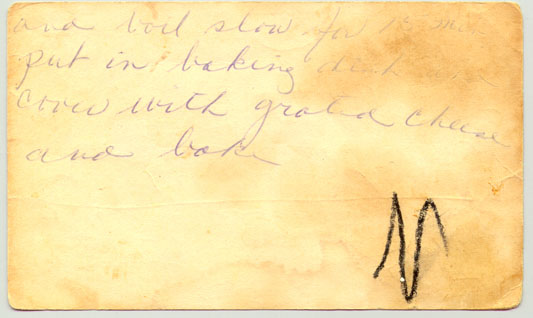 and boil slow for 15 min
put in baking dish and
cover with grated cheese
and bake